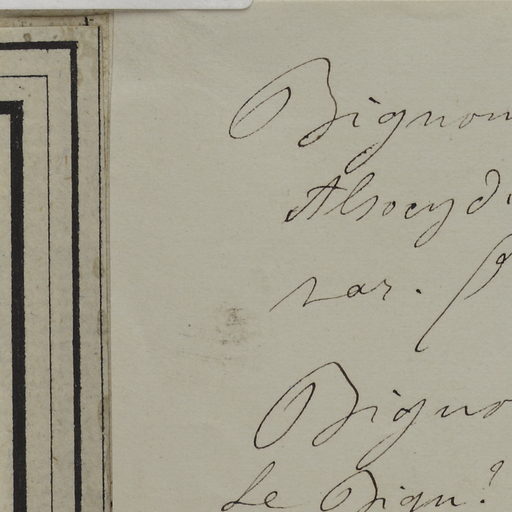 Bignon
Alsocydi
var.
Bigno
Le Bign.